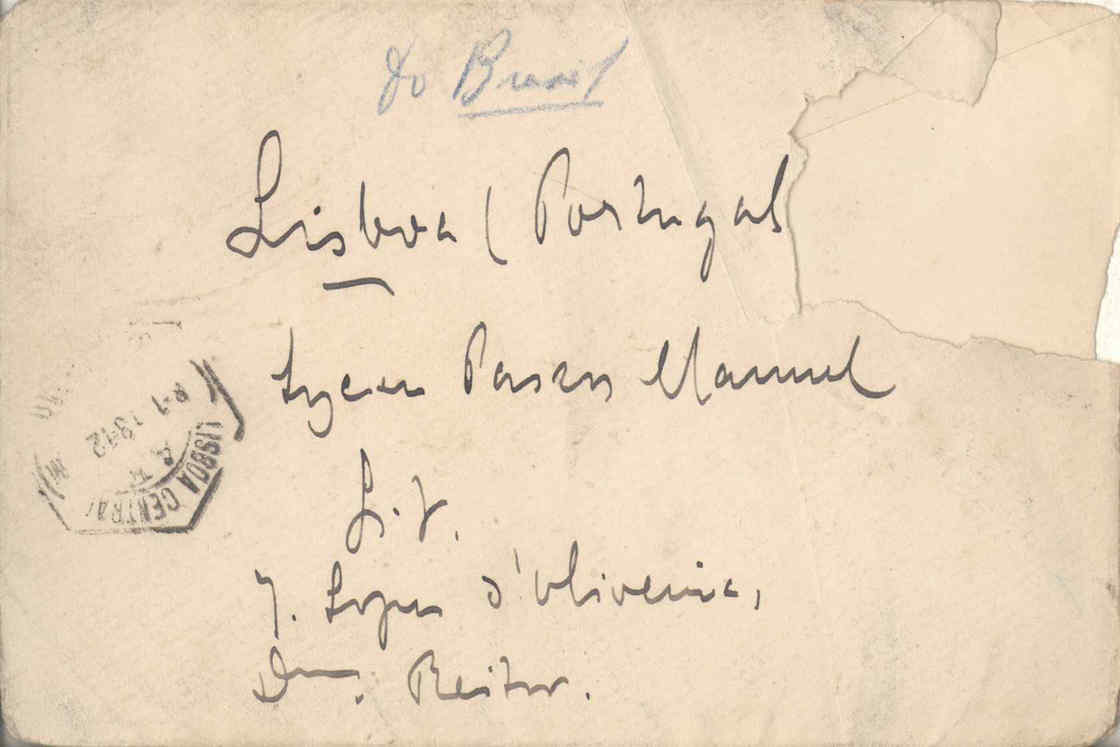 do Brasil
Lisboa (Portugal
Lyceu Passos Manuel
J. Lopes d'Oliveira,
Dmo. Reitor.
LISBOA CENTRAL